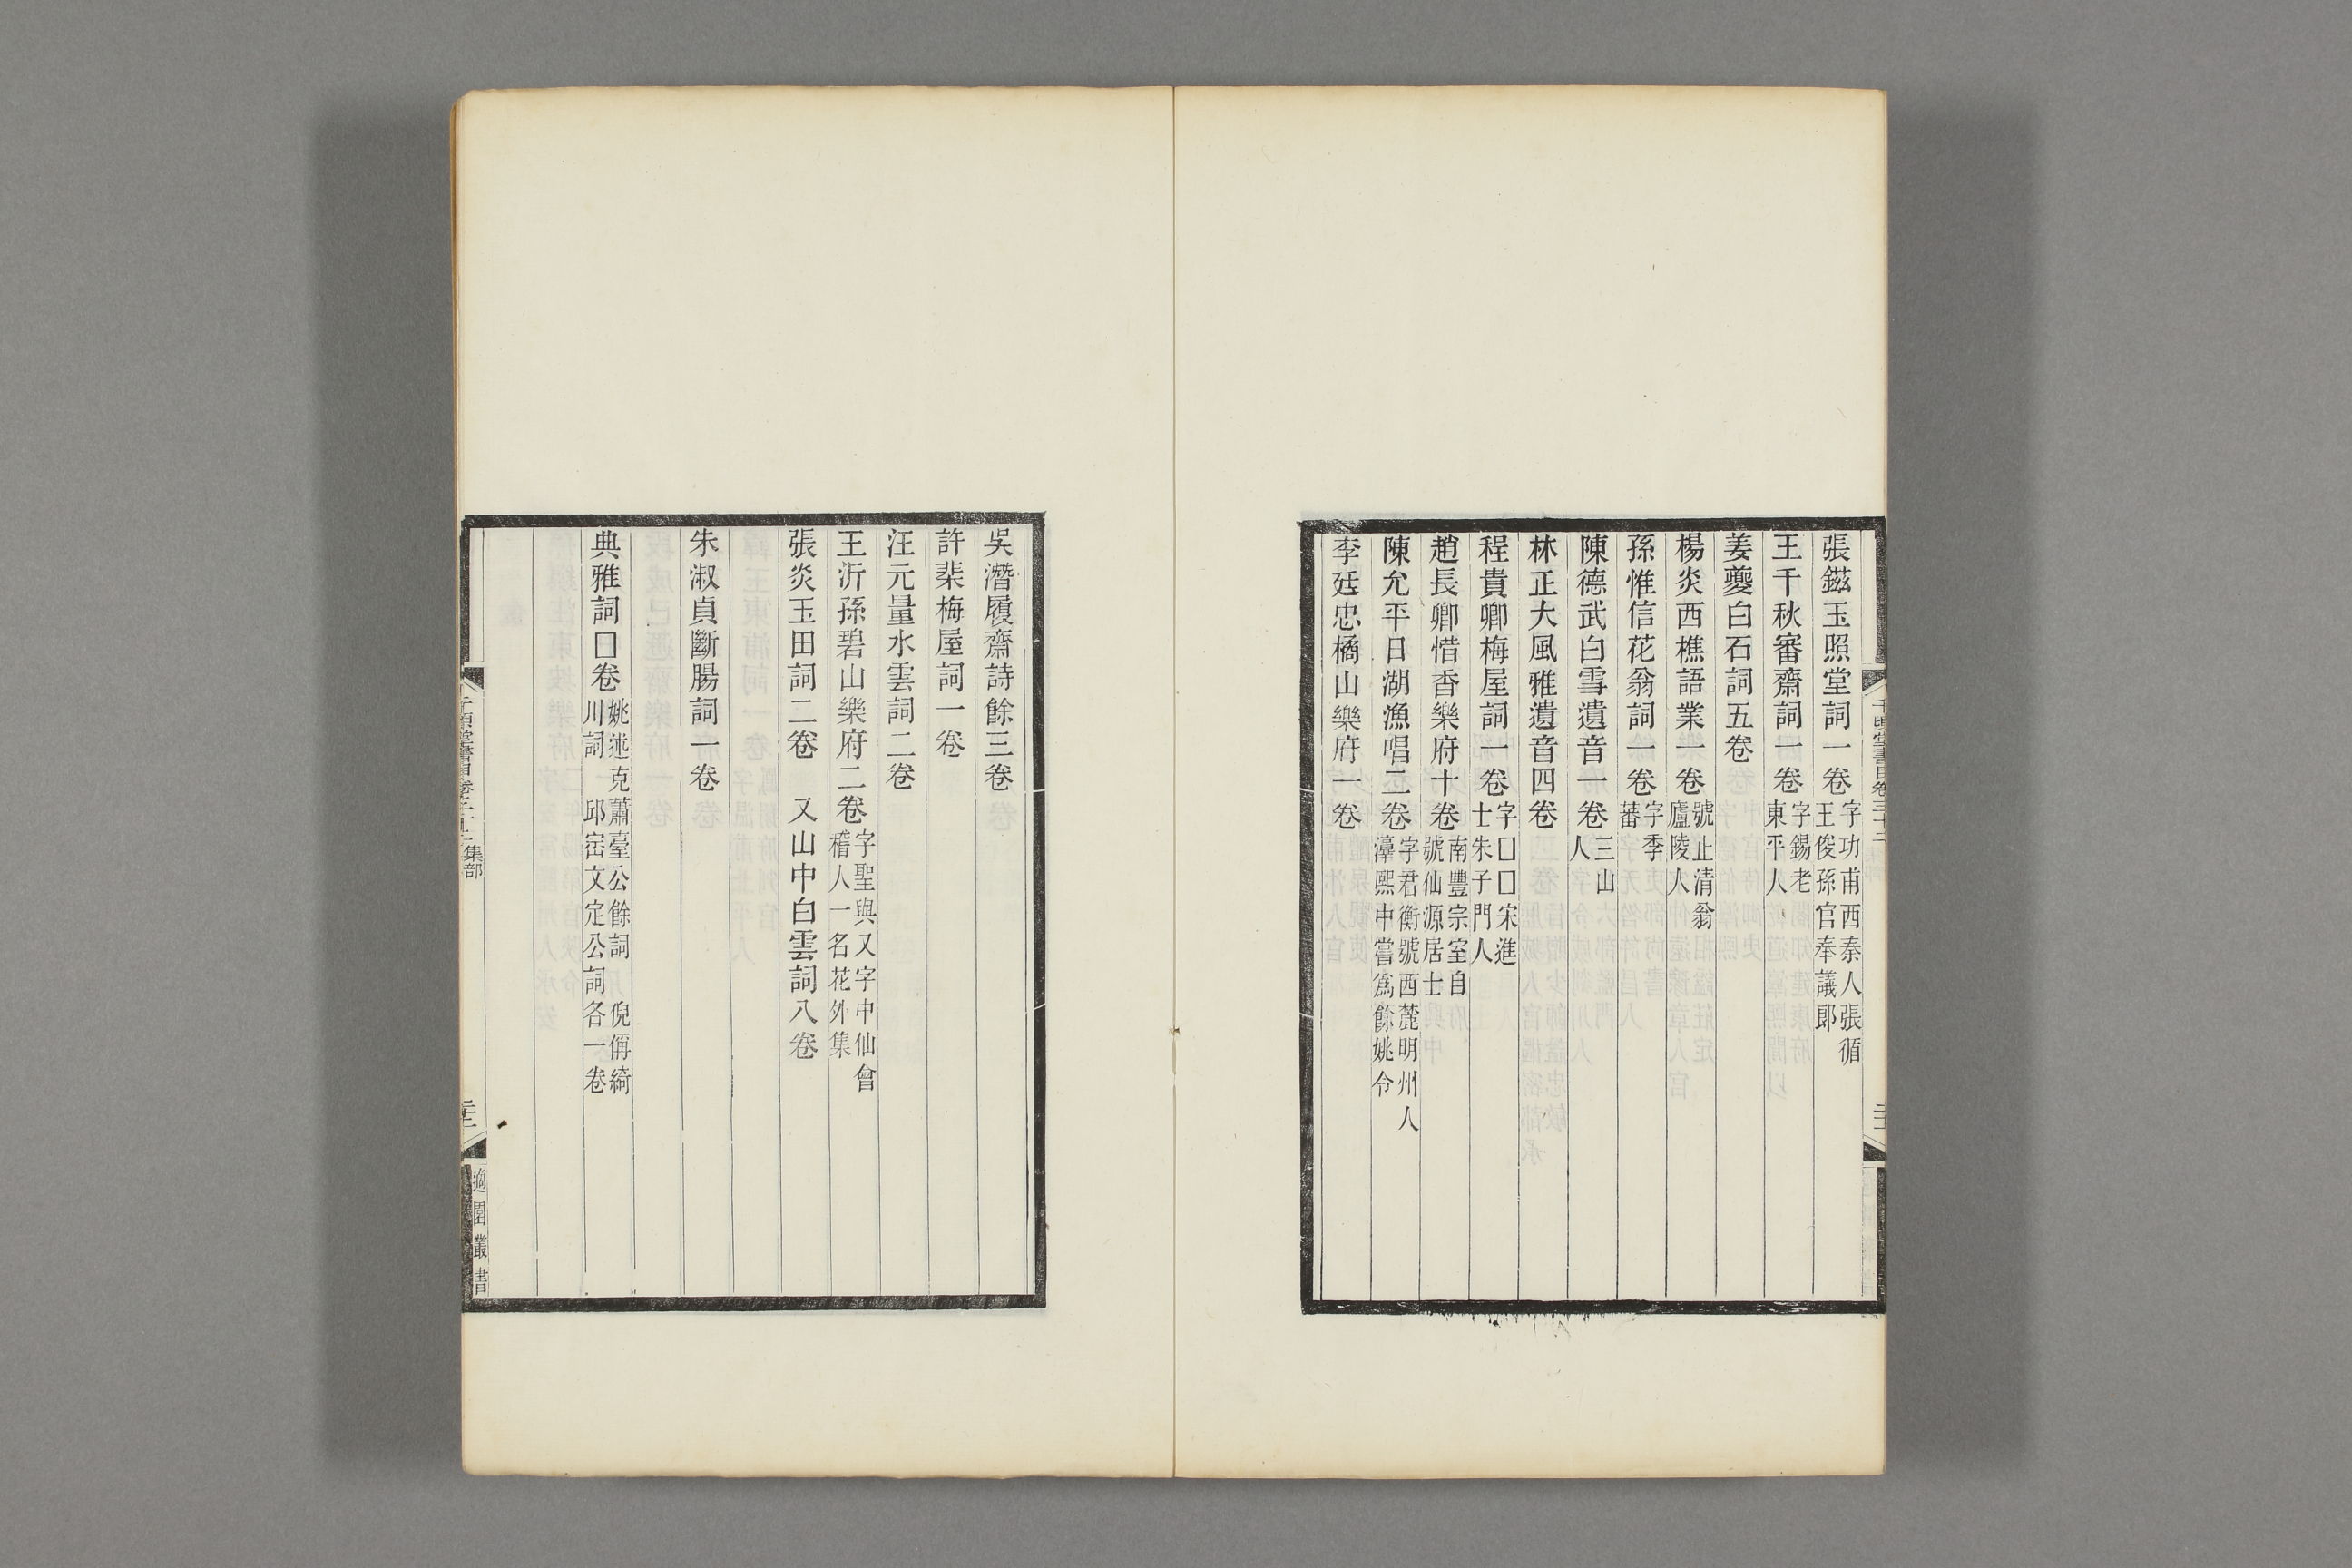 張鎡玉照堂詞一卷字功甫西秦人張循王俊孫官奉議郎
王千秋審齋詞一卷字錫老東平人
姜夔白石詞五卷
楊炎西樵語業一卷號止清翁廬陵人
孫惟信花翁詞一卷字季蕃
陳德武白雪遺音一卷三山人
林正大風雅遺音四卷
程貴卿梅屋詞一卷字囗囗宋進士朱子門人
趙長卿惜香樂府十卷南豐宗室自號仙源居士
陳允平日湖漁唱二卷字君衡號西麓明州人淳熙中嘗爲餘姚令
李廷忠橘山樂府一卷
吳潛履齋詩餘三卷
許棐梅屋詞一卷
汪元量水雲詞二卷
王沂孫碧山樂府二卷字聖與又字中仙會稽人一名花外集
張炎玉田詞二卷 又山中白雲詞八卷
朱淑貞斷腸詞一卷
典雅詞囗卷姚述克蕭臺公餘詞 倪偁綺川詞 邱崈文定公詞各一卷
千頃堂書目卷三十二集部
適園叢書